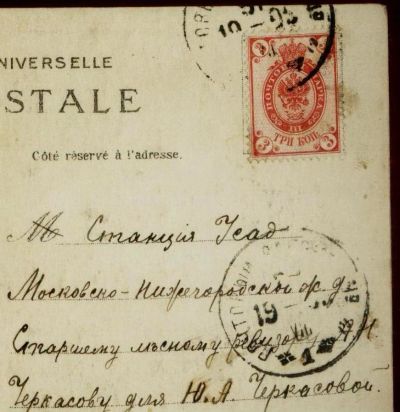 NIVERSELLE
STALE
Côté réservé à l'adresse.
ПОЧТОВАЯ МАРКА
3 III 3
ТРИ КОП.
19
1
Станція Усад
Московско-Нижегородской ж. д.
19
Старшему лѣсному ревизору
1
Черкасову для Ю. А. Черкасовой.